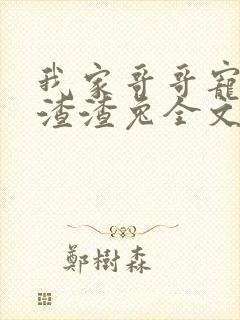 我家哥哥寵
渣渣兔全文
鄭樹森